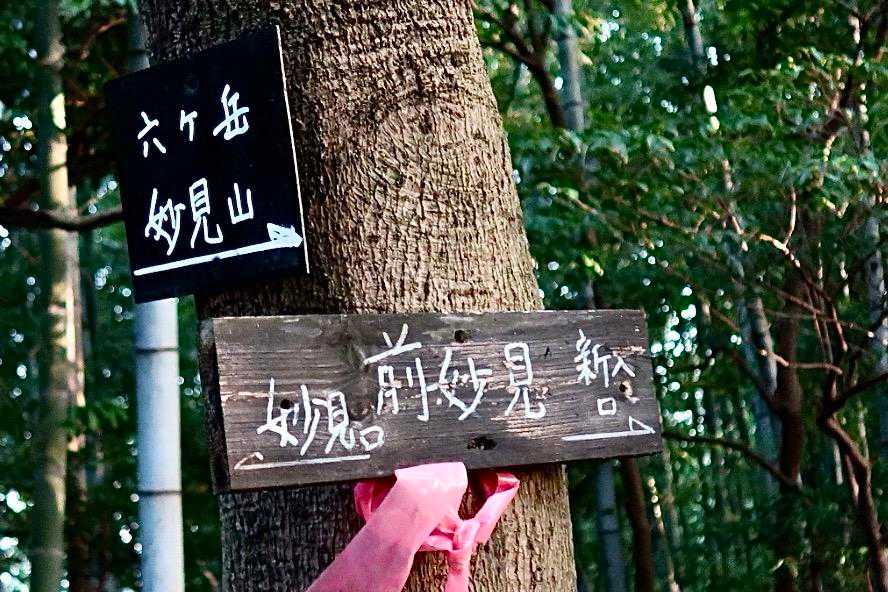 六ヶ岳
妙見山
妙見口 前妙見 新入口